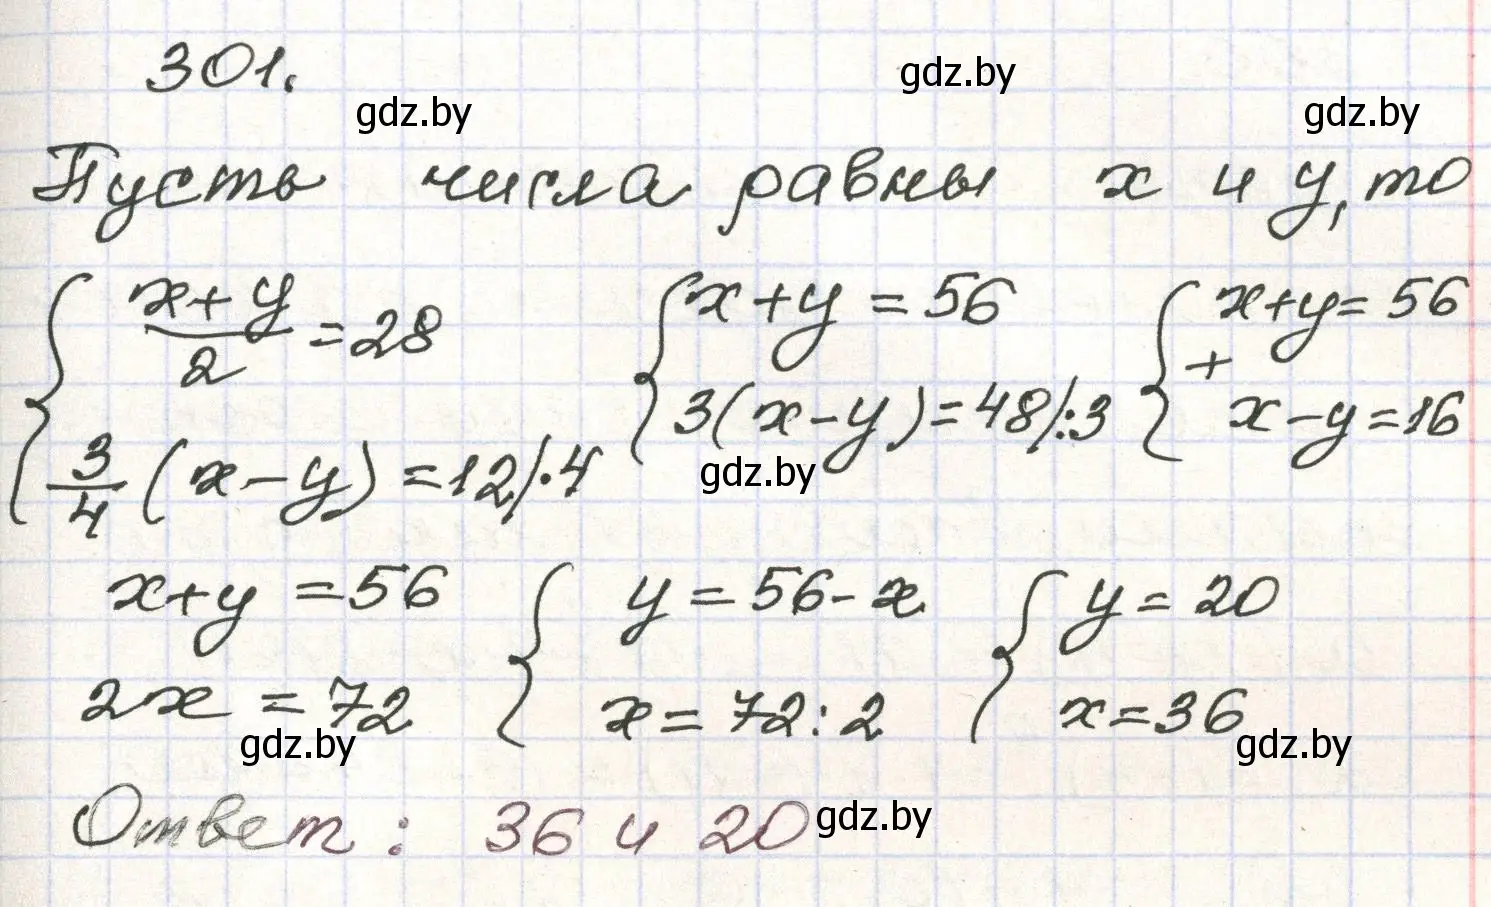 301.
gdz.by
gdz.by
gdz.by
Пусть числа равны x и y, то
{ (x+y)/2 = 28 { x+y = 56 { x+y = 56
+
3/4 (x-y) = 12 /·4 3(x-y) = 48 /:3 x-y = 16
gdz.by
x+y = 56 { y = 56-x { y = 20
2x = 72 x = 72:2 x = 36
gdz.by
gdz.by
Ответ: 36 и 20
gdz.by